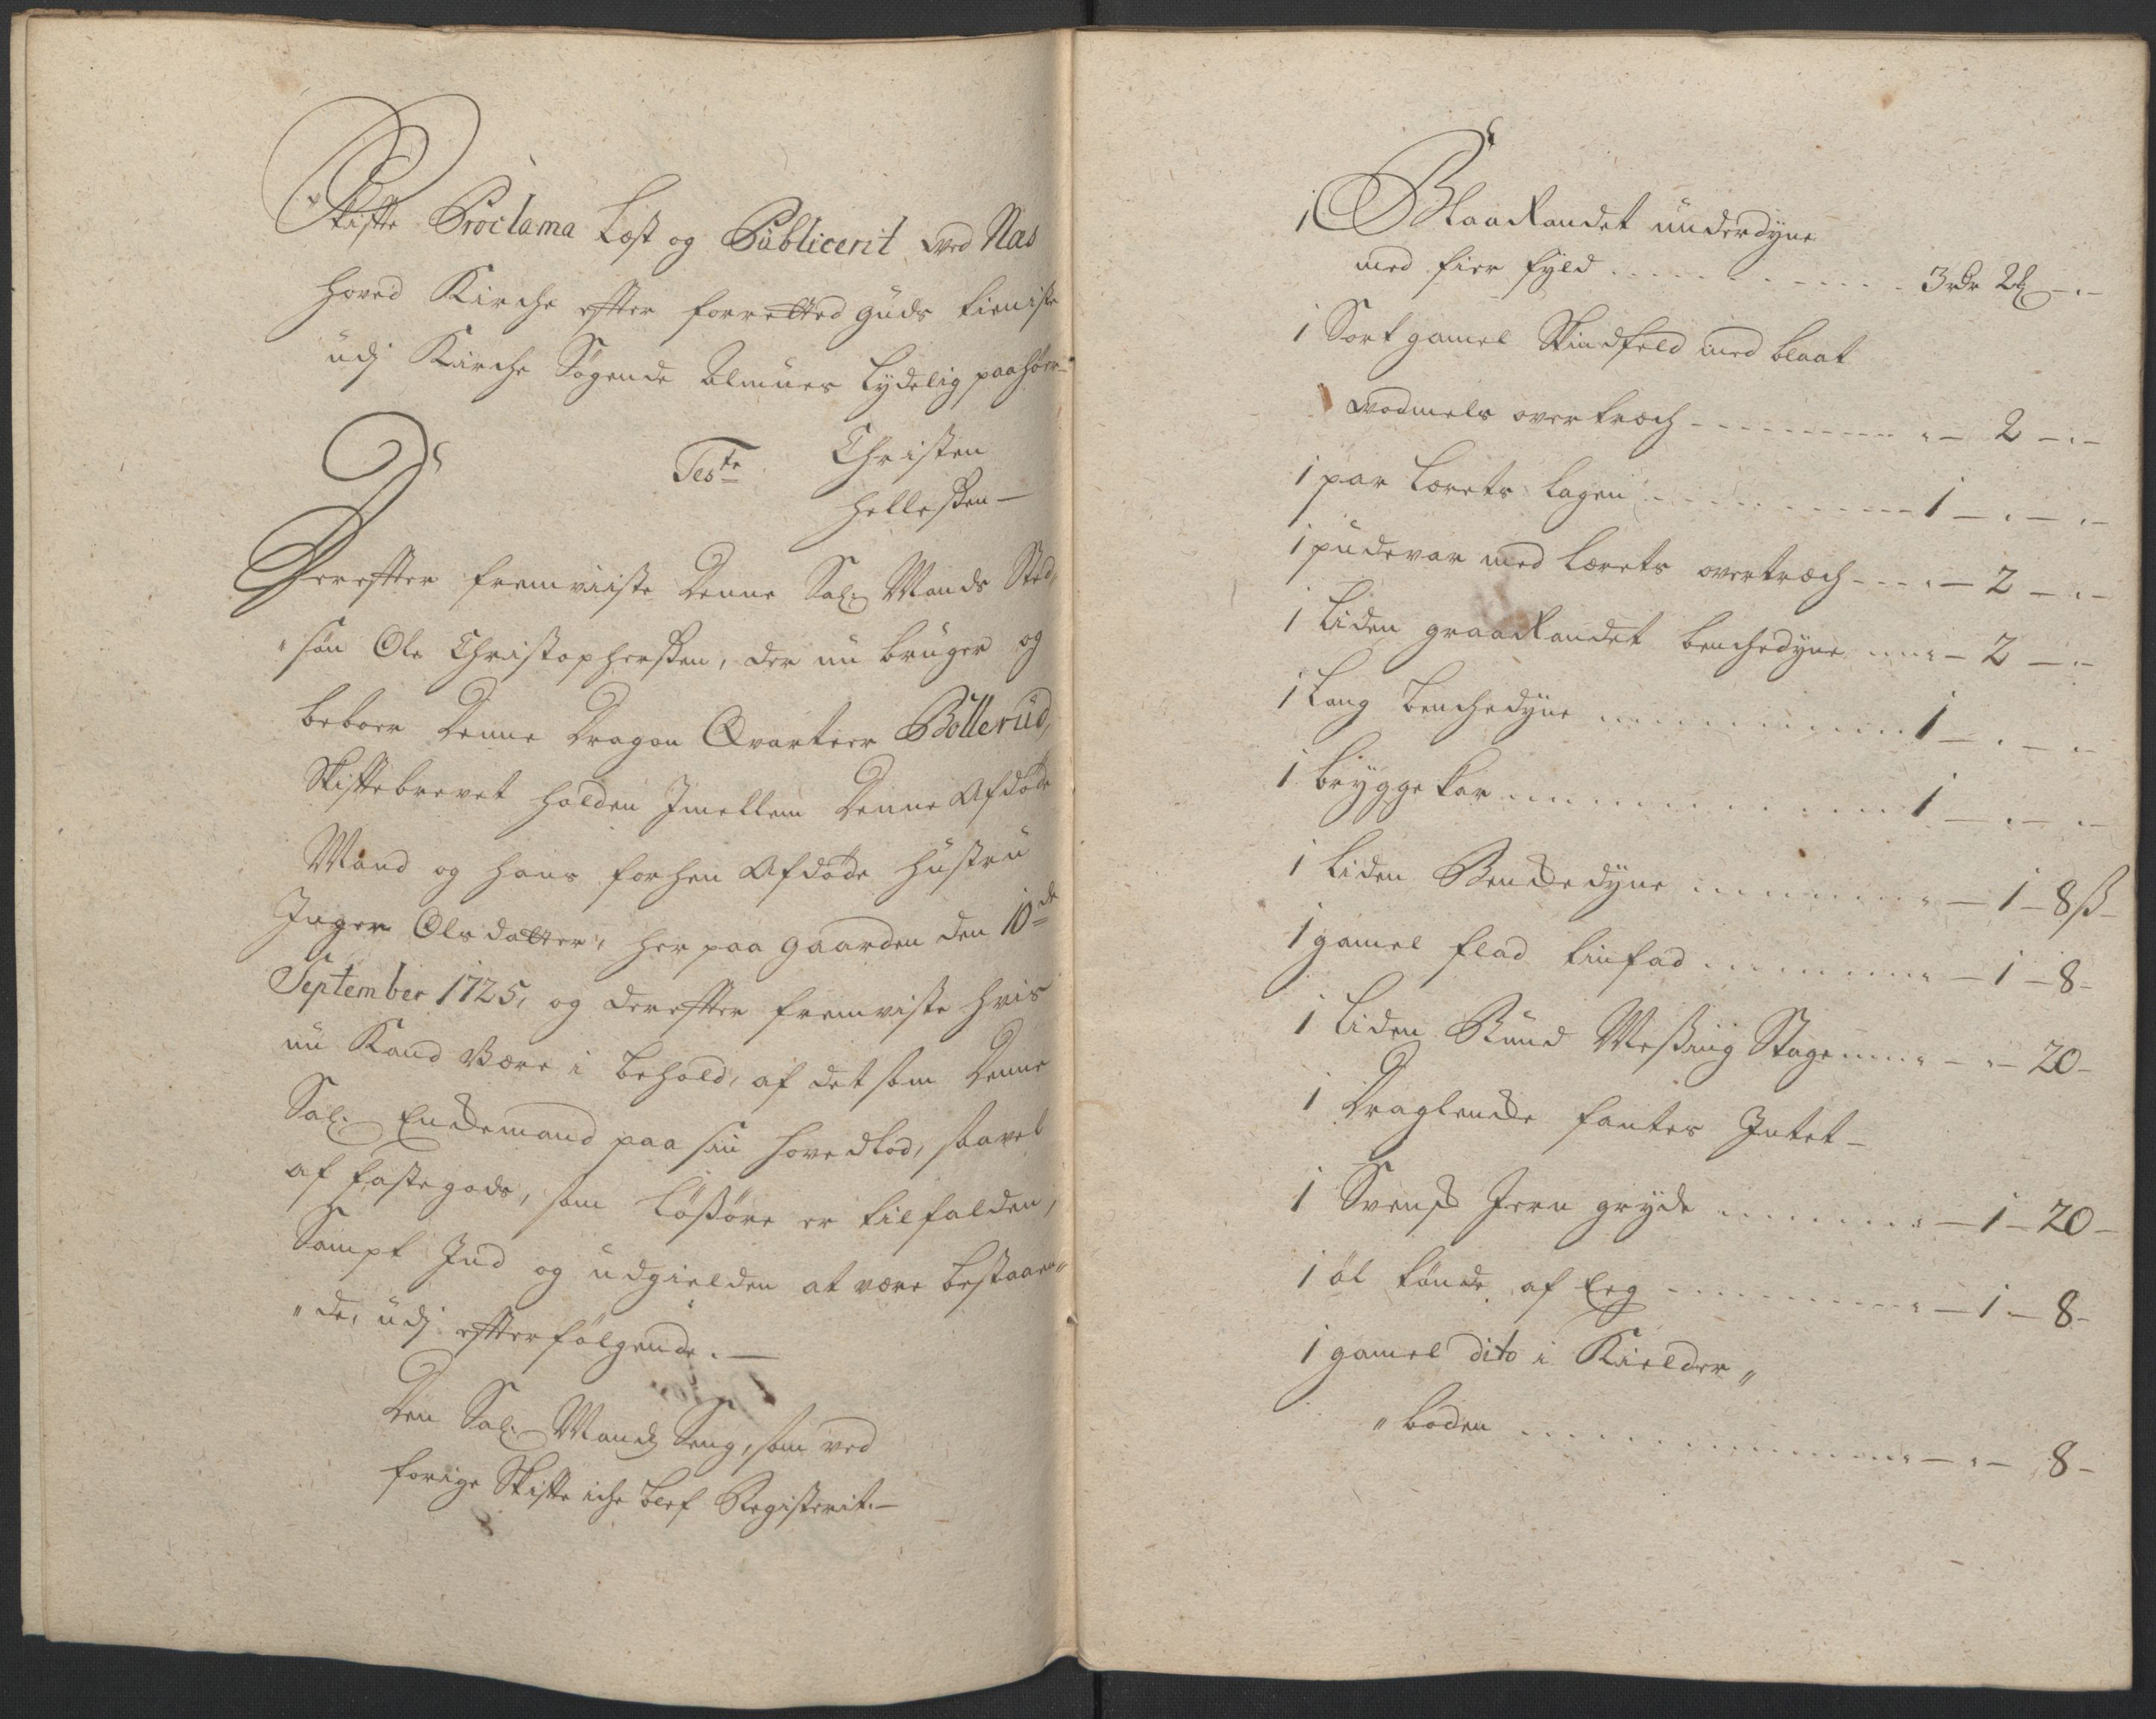 Skiffte Proclama Læst og Publicerit ved Nas
hoved Kirche effter forretted Guds tieniste
udj Kirche Søgende Almues Lydelig paahør
Teste Christen
Hellessen
Dereffter fremviiste denne Sal: Mands Sted
"søn Ole Christophersen, der nu bruger og
beboer denne Dragon Qvarteer Böllerud,
Skiftebrevet holden Imellem denne Afdøde
Mand og hans forhen Afdøde Hustru
Inger Olsdatter, her paa gaarden den 10de
September 1725, og dereffter fremviste hvis
nu Kand Være i behold, af det som denne
Sal: Enchemand paa sin hovedlod, saavel
af fastegods, som Løsøre er tilfalden,
Sampt Ind og udgielden at være bestaaen"
"de, udj effterfølgende.
Den Sal: Mands Seng, som ved
forige Skiffte iche blef Registerit.
1 Blaarandet underdyne
med fier fyld 3 rdr 2 –.–
1 Sort gamel Skindfeld med blaat
vadmels overtræch – 2 –.–
1 par Lærets lagen 1 –.–.–
1 pudevar med lærets overtræch – 2 –.–
1 Liden graarandet benchedyne – 2 –.–
1 Lang benchedyne 1 –.–.–
1 brygge Kar 1 –.–.–
1 liden Benchedyne – 1 – 8 ß
1 gamel flad tinfad – 1 – 8 –
1 Liden Rund Messing Stage – – 20 –
1 fantes Intet –
1 Svensk Jern gryde – 1 – 20 –
1 øl tønde af Eeg – 1 – 8 –
1 gamel dito i Kielder"
"boden – – 8 –